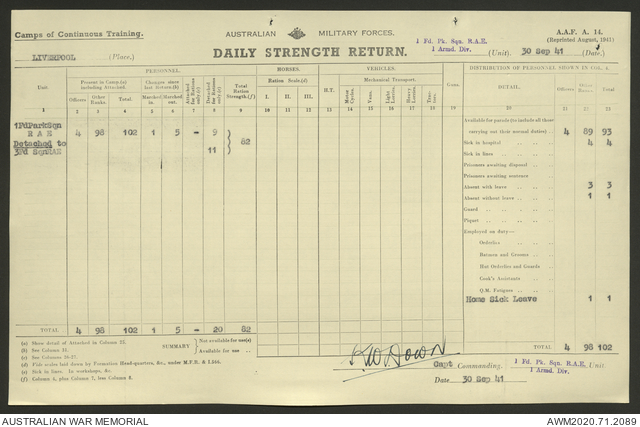 Camps of Continuous Training.
AUSTRALIAN MILITARY FORCES.
A.A.F. A. 14.
(Reprinted August, 1941)
LIVERPOOL (Place.)
DAILY STRENGTH RETURN.
1 Fd. Pk. Sqn. R.A.E.
1 Armd. Div. (Unit). 30 Sep 41 (Date.)
PERSONNEL. HORSES. VEHICLES. DISTRIBUTION OF PERSONNEL SHOWN IN COL. 4.
Unit. Present in Camp(a) including Attached. Changes since last Return(b) Attached for Rations only(c) Detached for Rations only(c) Total Ration Strength.(f) Ration Scale.(d) H.T. Mechanical Transport. Guns. DETAIL. Officers Other Ranks. Total.
Officers Other Ranks. Total. Marched in. Marched out. I. II. III. Motor Cycles. Vans. Light Lorries. Heavy Lorries. Tractors.
1 2 3 4 5 6 7 8 9 10 11 12 13 14 15 16 17 18 19 20 21 22 23
1FdParkSqn
R A E 4 98 102 1 5 - 9
Detached to
3Fd SqnRAE 11
82
Available for parade (to include all those
carrying out their normal duties) 4 89 93
Sick in hospital 4 4
Sick in lines
Prisoners awaiting disposal
Prisoners awaiting sentence
Absent with leave 3 3
Absent without leave 1 1
Guard
Piquet
Employed on duty—
Orderlies
Batmen and Grooms
Hut Orderlies and Guards
Cook's Assistants
Q.M. Fatigues
Home Sick Leave 1 1
TOTAL 4 98 102 1 5 - 20 82
TOTAL 4 98 102
(a) Show detail of Attached in Column 22.
(b) See Column 24.
(c) See Columns 26-27.
(e) Sick in lines. In workshops, &c.
(f) Column 4, plus Column 7, less Column 8.
SUMMARY Not available for use(e)
Available for use
K W Down
Capt Commanding. 1 Fd. Pk. Sqn. R.A.E. Unit.
1 Armd. Div.
Date 30 Sep 41
AUSTRALIAN WAR MEMORIAL
AWM2020.71.2089